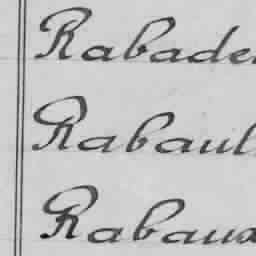 Rabade
Rabaul
Rabaux